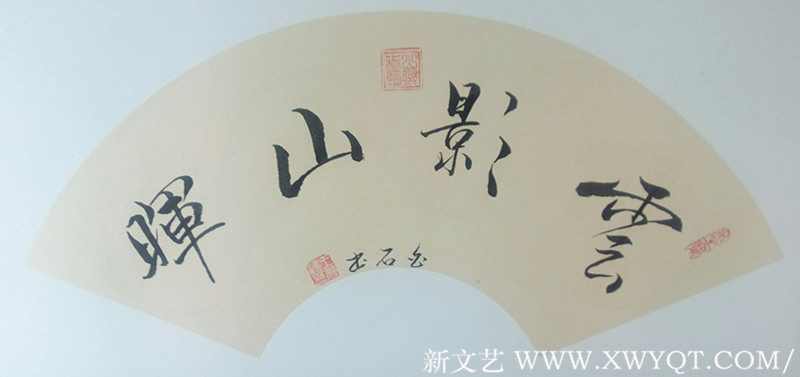 雲影山暉
石书
新文艺 WWW.XWYQT.COM/